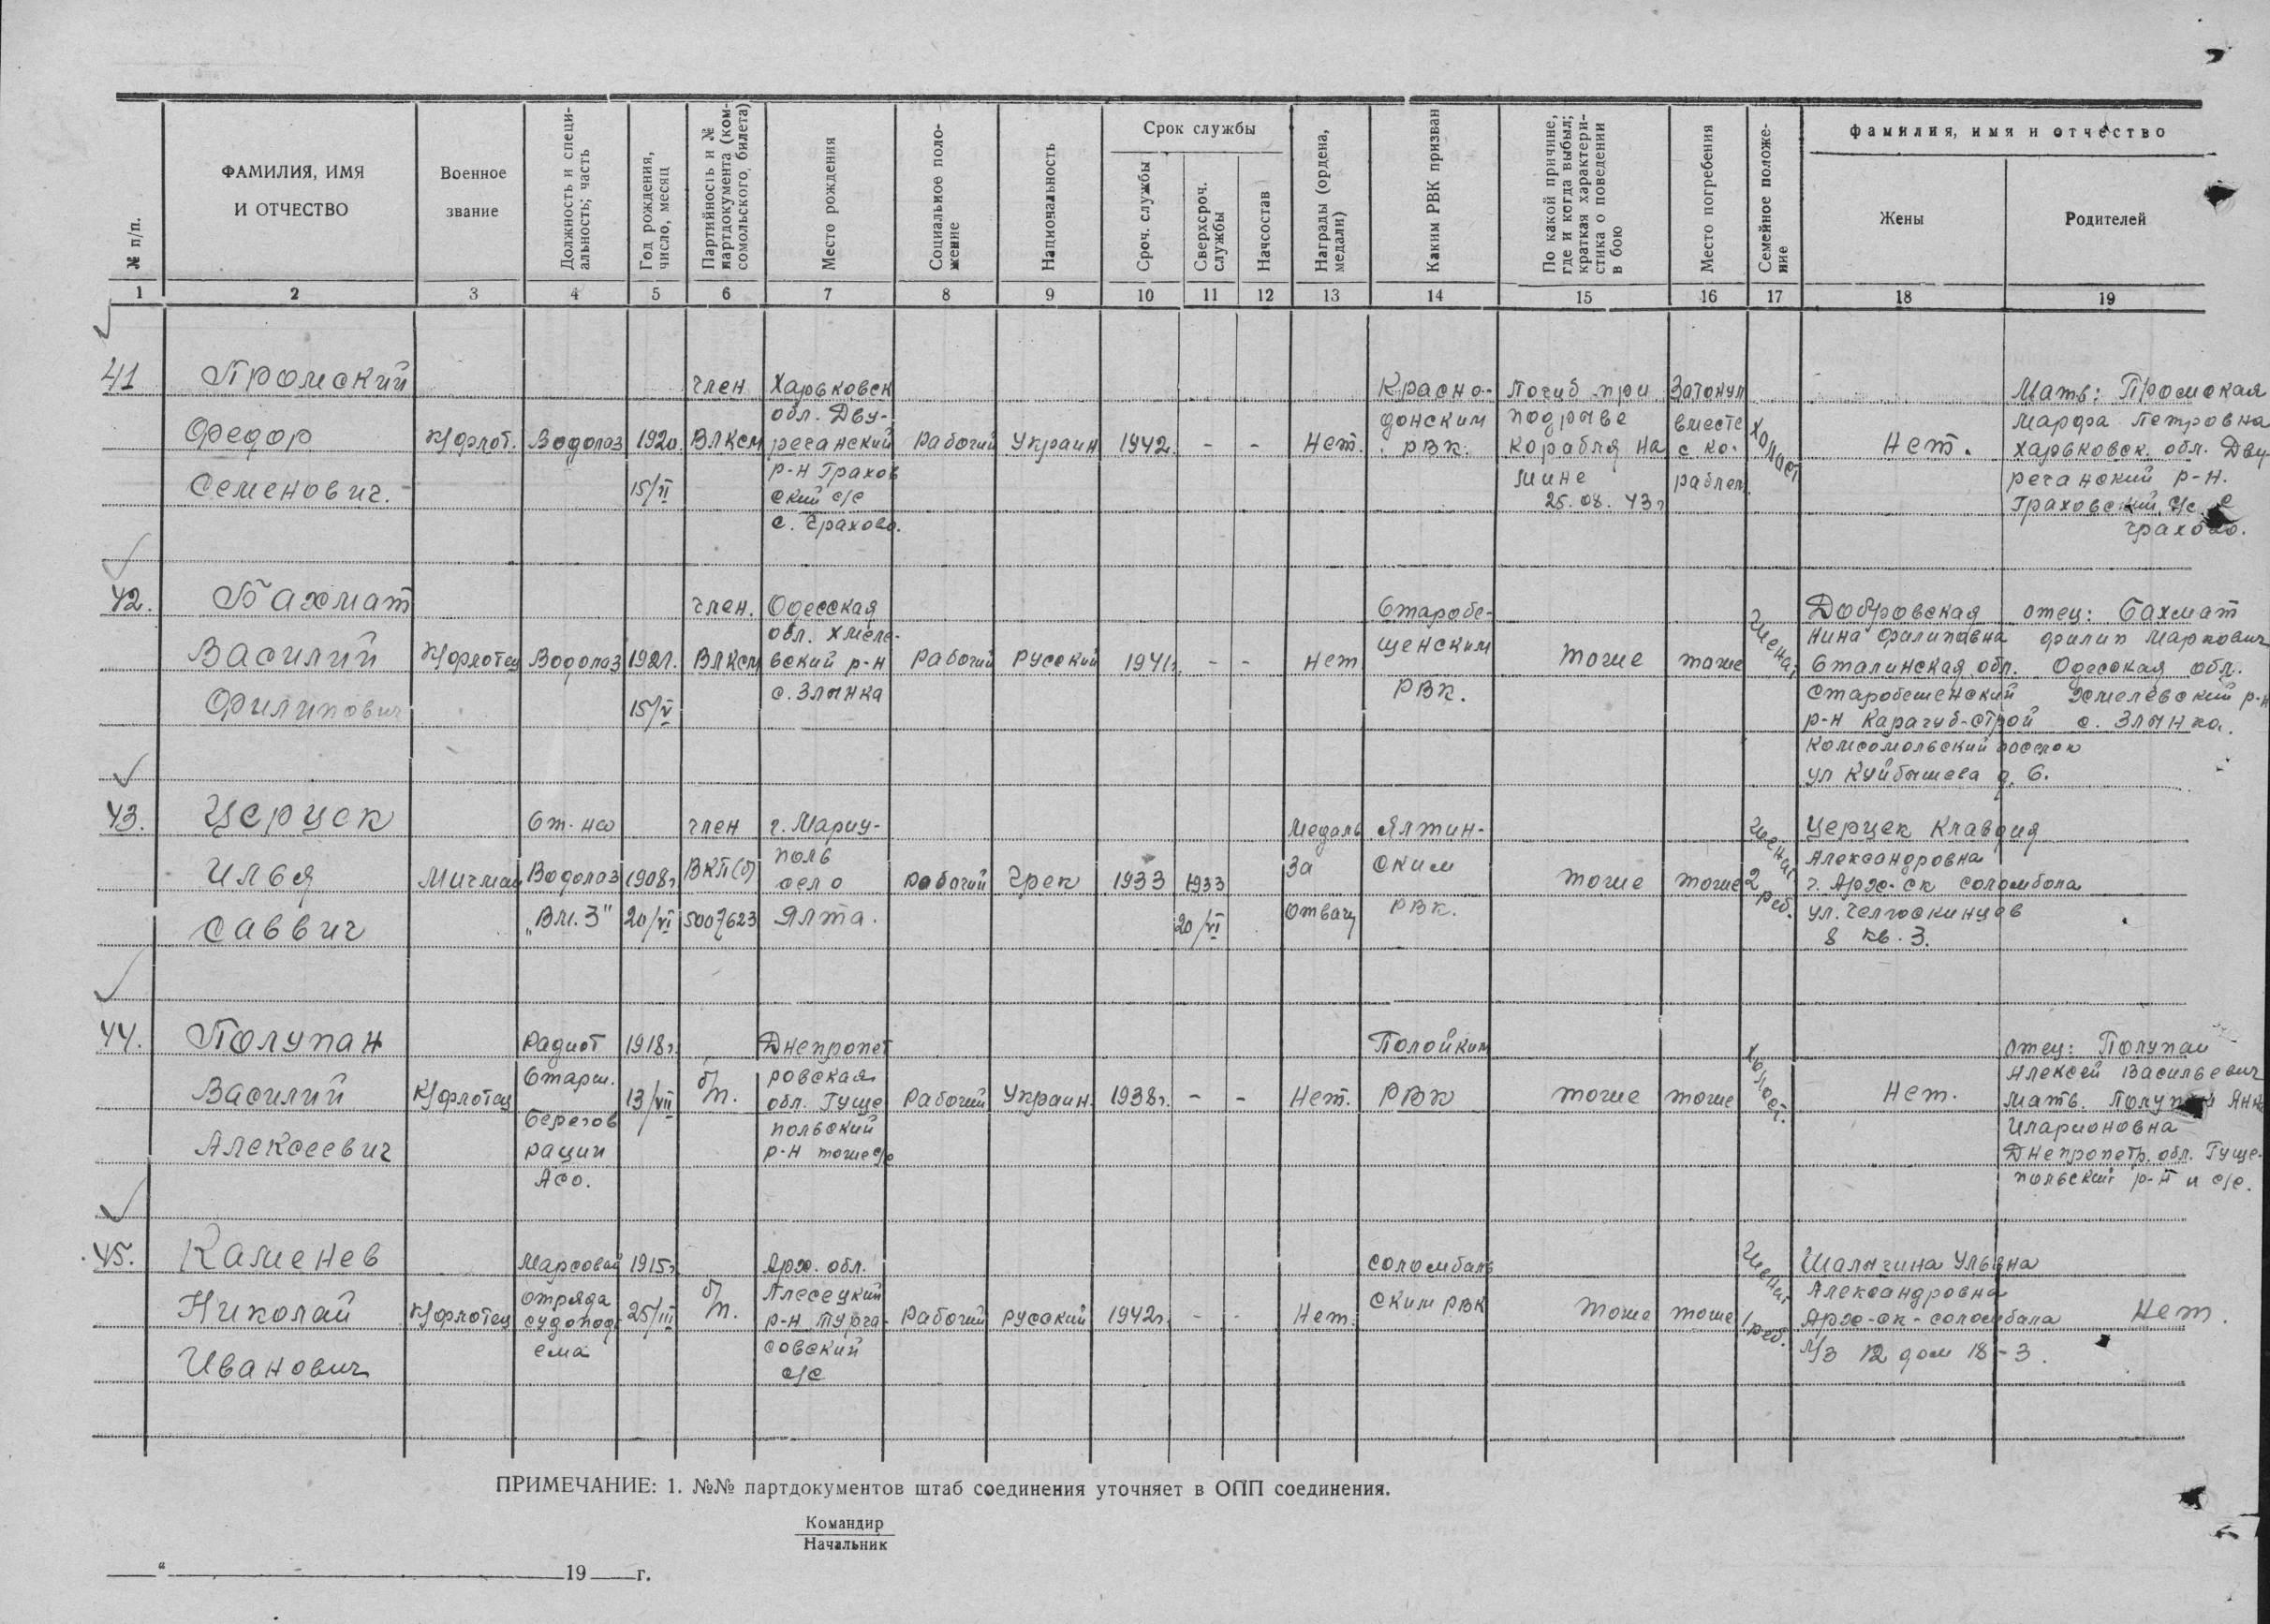 № п/п.
ФАМИЛИЯ, ИМЯ
И ОТЧЕСТВО
Военное
звание
Должность и специ-
альность; часть
Год рождения,
число, месяц
Партийность и №
партдокумента (ком-
сомольского, билета)
Место рождения
Социальное поло-
жение
Национальность
Срок службы
Сроч. службы
Сверхсроч.
службы
Начсостав
Награды (ордена,
медали)
Каким РВК призван
По какой причине,
где и когда выбыл;
краткая характери-
стика о поведении
в бою
Место погребения
Семейное положе-
ние
фамилия, имя и отчество
Жены
Родителей
1 2 3 4 5 6 7 8 9 10 11 12 13 14 15 16 17 18 19
41
Промский
Федор
Семенович.
К/флот.
Водолаз
1920.
15/II
член
ВЛКСМ
Харьковск
обл. Дву-
речанский
р-н Грахов
ский с/с
с. Грахово.
Рабочий
Украин
1942.
-
-
Нет.
Красно-
донским
РВК.
Погиб при
подрыве
корабля на
мине
25.08.43г
Затонул
вместе
с ко-
раблем.
Холост
Нет.
Мать: Промская
Марфа Петровна
Харьковск. обл. Дву-
речанский р-н.
Граховский с/с. с
Грахово.
42.
Бахмат
Василий
Филипович
К/флотец
Водолаз
1921.
15/V
член.
ВЛКСМ
Одесская
обл. Хмеле-
вский р-н
с. Злынка
Рабочий
Русский
1941г.
-
-
Нет
Старобе-
щенским
РВК.
тоже
тоже
Женат
Добровская
Нина Филиповна
Сталинская обл.
Старобешенский
р-н Карачуб-Строй
Комсомольский поселок
ул Куйбышева д. 6.
отец: Бахмат
Филип Маркович
Одесская обл.
Хмелевский р-н
с. Злынка.
43.
Церцек
Илья
Саввич
Мичман
Ст. нса
Водолаз
„Вм. 3"
1908г
20/VI
член
ВКП(б)
5007623
г. Мариу-
поль
село
Ялта.
Рабочий
Грек
1933
1933
20/VI
Медаль
За
Отвагу
Ялтин-
ским
РВК.
тоже
тоже
Женат
2 реб.
Церцек Клавдия
Александровна
г. Арх-ск соломбола
ул. Челюскинцев
8 кв. 3.
44.
Полупан
Василий
Алексеевич
К/флотец
Радист
Старш.
Берегов
рации
АСО.
1918г.
13/VII
б/п.
Днепропет
ровская
обл. Гуще
польский
р-н тоже с/с
Рабочий
Украин.
1938г.
-
-
Нет.
Полойким
РВК
тоже
тоже
Холост.
Нет.
отец: Полупан
Алексей Васильевич
Мать. Полупан Анна
Иларионовна
Днепропетр. обл. Гуще-
польский р-н и с/с.
45.
Каменев
Николай
Иванович
К/флотец
Марсовой
отряда
судопод-
ема
1915г.
25/III
б/п.
Арх. обл.
Плесецкий
р-н Турча-
совский
с/с
Рабочий
Русский
1942г.
-
-
Нет.
соломбаль
ским РВК
тоже
тоже
Женат
1 реб.
Шалыгина Ульяна
Александровна
Арх-ск-соломбала
Л/З 12 дом 18-3.
Нет.
ПРИМЕЧАНИЕ: 1. №№ партдокументов штаб соединения уточняет в ОПП соединения.
Командир
Начальник
„ 19 г.